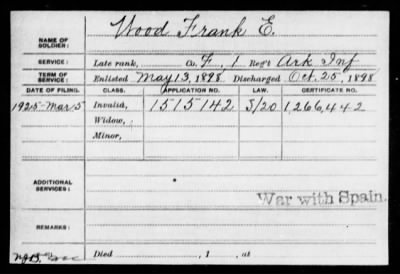 NAME OF SOLDIER: Wood Frank E.
SERVICE: Late rank, Co. F, 1 Reg't Ark Inf
TERM OF SERVICE: Enlisted May 13, 1898 Discharged Oct. 25, 1898
DATE OF FILING. CLASS. APPLICATION NO. LAW. CERTIFICATE NO.
1925-Mar 5 Invalid, 1515142 S/20 1,266,442
Widow,
Minor,
ADDITIONAL SERVICES:
War with Spain.
REMARKS:
Died , 1 , at